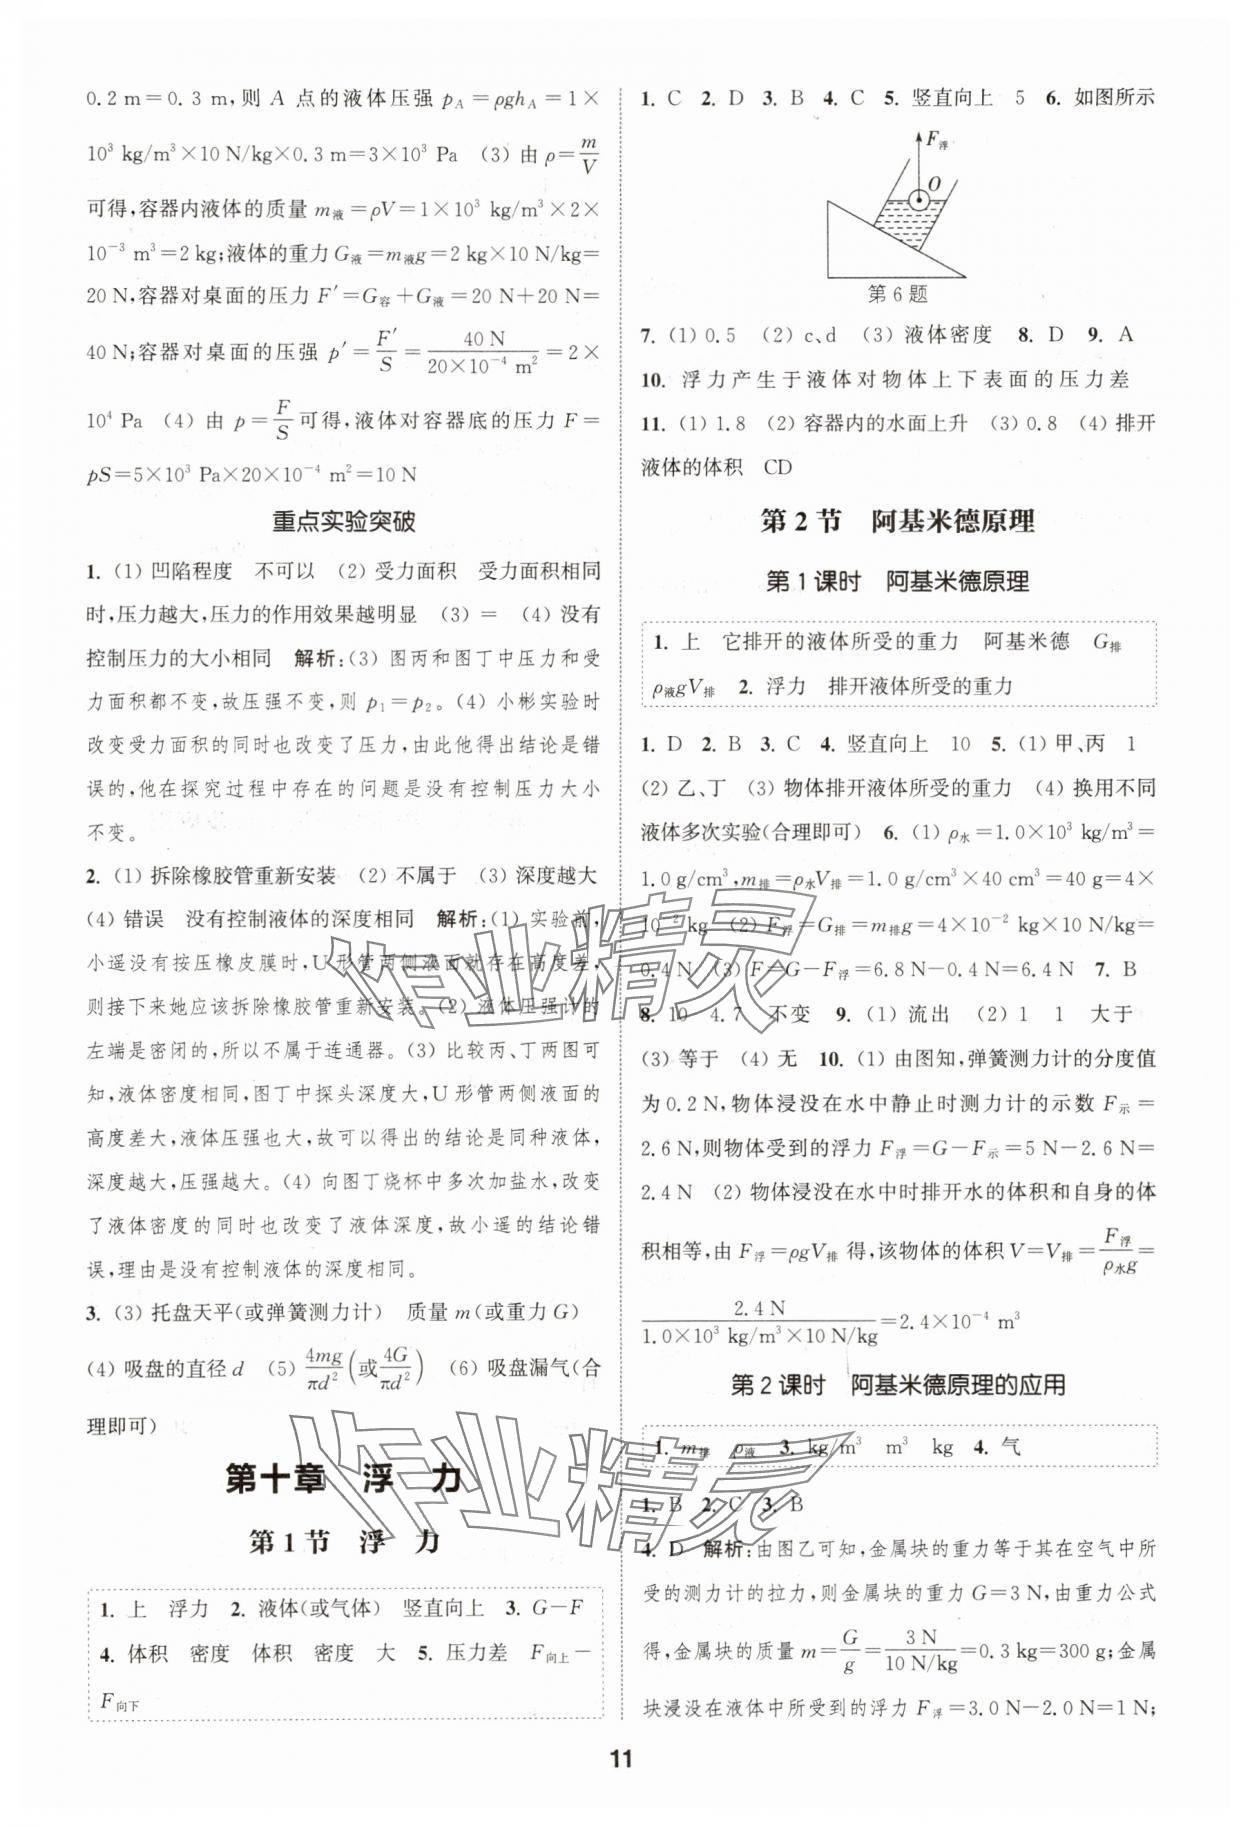 0.2 m＝0.3 m,则 A 点的液体压强 p_A＝ρgh_A＝1×
10³ kg/m³×10 N/kg×0.3 m＝3×10³ Pa (3) 由 ρ＝m/V
可得,容器内液体的质量 m液＝ρV＝1×10³ kg/m³×2×
10⁻³ m³＝2 kg;液体的重力 G液＝m液g＝2 kg×10 N/kg＝
20 N,容器对桌面的压力 F′＝G容＋G液＝20 N＋20 N＝
40 N;容器对桌面的压强 p′＝F′/S＝40 N/(20×10⁻⁴ m²)＝2×
10⁴ Pa (4) 由 p＝F/S可得,液体对容器底的压力 F＝
pS＝5×10³ Pa×20×10⁻⁴ m²＝10 N
重点实验突破
1. (1) 凹陷程度 不可以 (2) 受力面积 受力面积相同
时,压力越大,压力的作用效果越明显 (3)＝ (4) 没有
控制压力的大小相同 解析:(3) 图丙和图丁中压力和受
力面积都不变,故压强不变,则 p₁＝p₂。(4) 小彬实验时
改变受力面积的同时也改变了压力,由此他得出结论是错
误的,他在探究过程中存在的问题是没有控制压力大小
不变。
2. (1) 拆除橡胶管重新安装 (2) 不属于 (3) 深度越大
(4) 错误 没有控制液体的深度相同 解析:(1) 实验前,
小遥没有按压橡皮膜时,U 形管两侧液面就存在高度差,
则接下来她应该拆除橡胶管重新安装。(2) 液体压强计的
左端是密闭的,所以不属于连通器。(3) 比较丙、丁两图可
知,液体密度相同,图丁中探头深度大,U 形管两侧液面的
高度差大,液体压强也大,故可以得出的结论是同种液体,
深度越大,压强越大。(4) 向图丁烧杯中多次加盐水,改变
了液体密度的同时也改变了液体深度,故小遥的结论错
误,理由是没有控制液体的深度相同。
3. (3) 托盘天平(或弹簧测力计) 质量 m(或重力 G)
(4) 吸盘的直径 d (5) 4mg/πd²(或4G/πd²) (6) 吸盘漏气(合
理即可)
第十章 浮 力
第1节 浮 力
1. 上 浮力 2. 液体(或气体) 竖直向上 3. G－F
4. 体积 密度 体积 密度 大 5. 压力差 F向上－
F向下
1. C 2. D 3. B 4. C 5. 竖直向上 5 6. 如图所示
F浮
O
第6题
7. (1) 0.5 (2) c、d (3) 液体密度 8. D 9. A
10. 浮力产生于液体对物体上下表面的压力差
11. (1) 1.8 (2) 容器内的水面上升 (3) 0.8 (4) 排开
液体的体积 CD
第2节 阿基米德原理
第1课时 阿基米德原理
1. 上 它排开的液体所受的重力 阿基米德 G排
ρ液gV排 2. 浮力 排开液体所受的重力
1. D 2. B 3. C 4. 竖直向上 10 5. (1) 甲、丙 1
(2) 乙、丁 (3) 物体排开液体所受的重力 (4) 换用不同
液体多次实验(合理即可) 6. (1) ρ水＝1.0×10³ kg/m³＝
1.0 g/cm³,m排＝ρ水V排＝1.0 g/cm³×40 cm³＝40 g＝4×
10⁻² kg (2) F浮＝G排＝m排g＝4×10⁻² kg×10 N/kg＝
0.4 N (3) F＝G－F浮＝6.8 N－0.4 N＝6.4 N 7. B
8. 10 4.7 不变 9. (1) 流出 (2) 1 1 大于
(3) 等于 (4) 无 10. (1) 由图知,弹簧测力计的分度值
为 0.2 N,物体浸没在水中静止时测力计的示数 F示＝
2.6 N,则物体受到的浮力 F浮＝G－F示＝5 N－2.6 N＝
2.4 N (2) 物体浸没在水中时排开水的体积和自身的体
积相等,由 F浮＝ρgV排 得,该物体的体积 V＝V排＝F浮/ρ水g＝
2.4 N/(1.0×10³ kg/m³×10 N/kg)＝2.4×10⁻⁴ m³
第2课时 阿基米德原理的应用
1. m排 ρ液 3. kg/m³ m³ kg 4. 气
1. B 2. C 3. B
4. D 解析:由图乙可知,金属块的重力等于其在空气中所
受的测力计的拉力,则金属块的重力 G＝3 N,由重力公式
得,金属块的质量 m＝G/g＝3 N/(10 N/kg)＝0.3 kg＝300 g;金属
块浸没在液体中所受到的浮力 F浮＝3.0 N－2.0 N＝1 N;
11
作业精灵
作业精灵